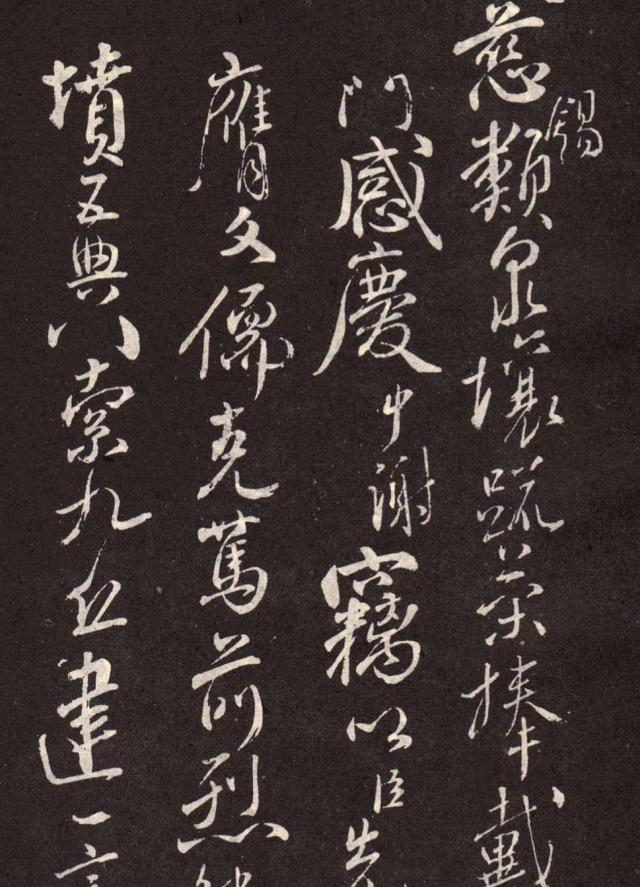 慈錫類泉壤疏榮捧戴
門感慶中謝竊以臣先
膺文儒克篤前烈
墳五典八索九丘建一言